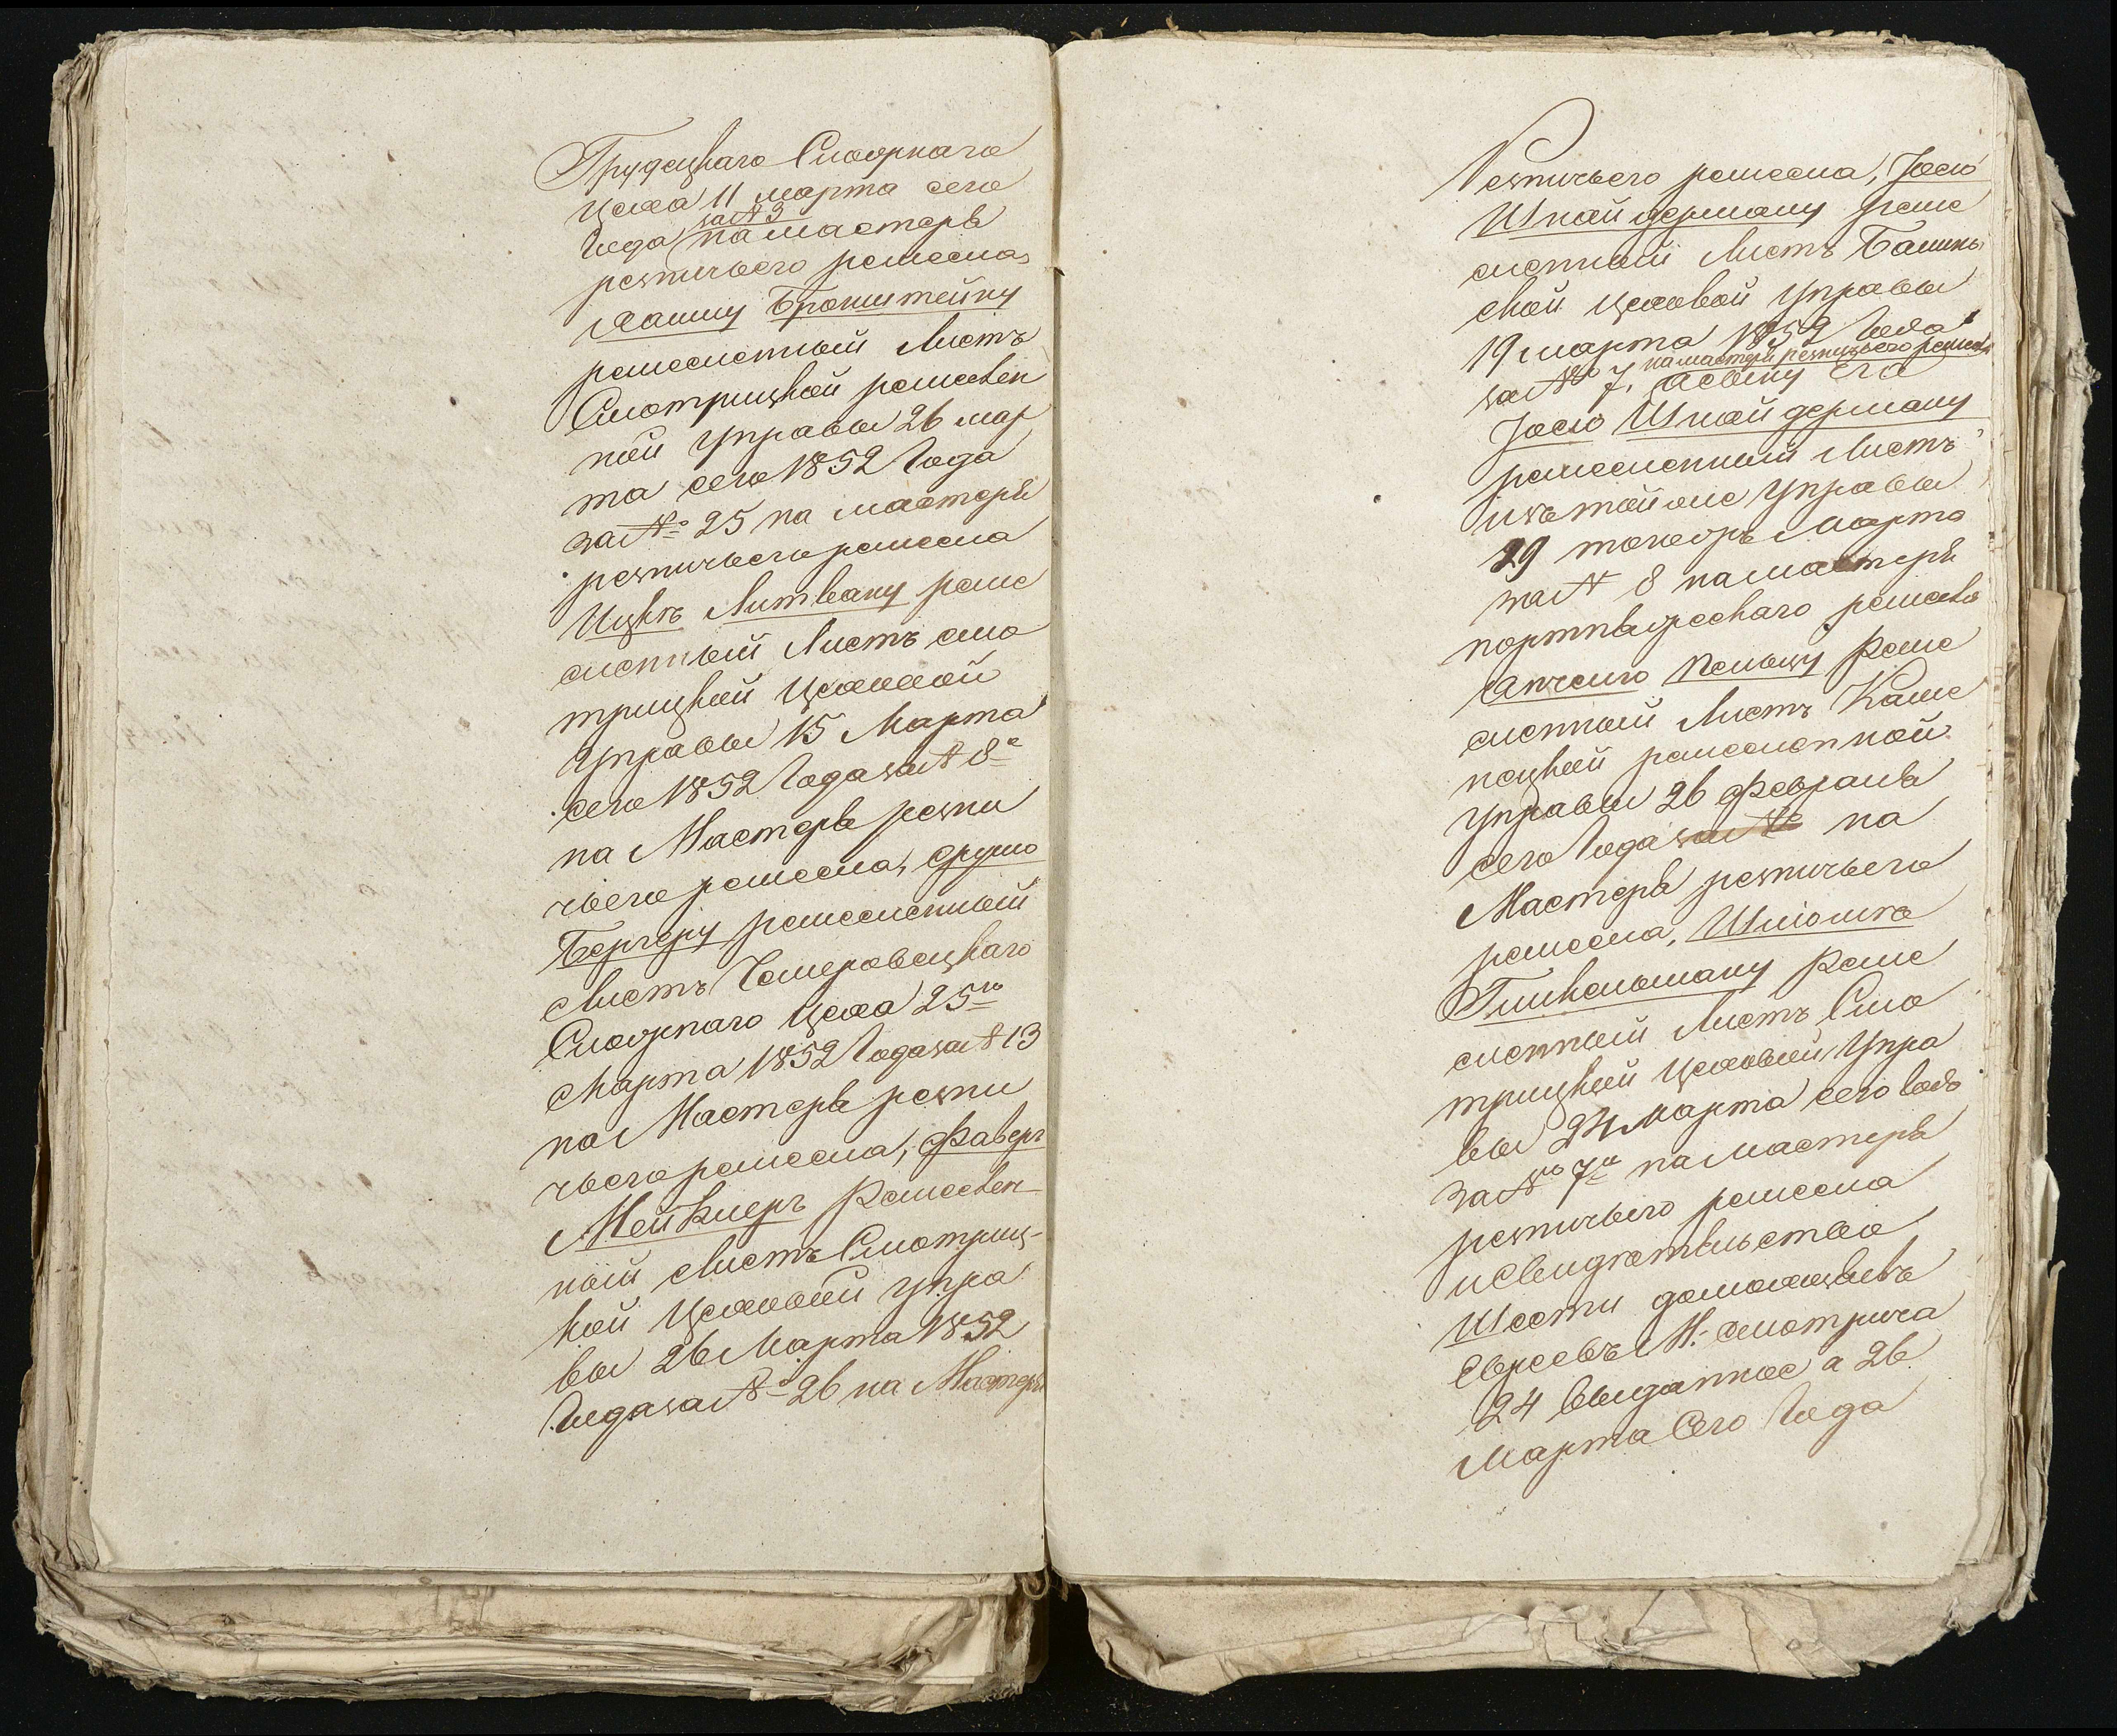 Грудецкаго Сложнаго
цеха 11 марта сего
за № 3
года на мастера
резничьего ремесла,
Хаиму Бронштейну
ремесленный Листъ
Смотрицкой ремеслен
ной управы 26 мар
та сего 1852 года
за № 25 на мастера
резничьего ремесла
Ицкѣ Литваку реме
сленный Листъ смо
трицкой Цеховой
управы 15 Марта
сего 1852 года за № 8
на Мастера резни
чьего ремесла, Срулю
Бергеру ремесленный
Листъ Чемеровецкаго
Сложнаго Цеха 25го
Марта 1852 года за № 13
на Мастера резни
чьего ремесла,
Ремеслен-
ный Листъ Смотриц-
кой Цеховой упра
вы 26 Марта 1852
года за № 26 на Мастера
Резничьего ремесла, Іосю
Шнайдерману реме
сленный Листъ
ской цеховой управы
19 марта 1852 года
на мастера резничьего ремесла
за № 7, Его
Іосю Шнайдерману
ремесленный Листъ
изъ той же управы
29 тогожъ Марта
за № 8 на мастера
портняжескаго
Реме
сленный Листъ Каме
нецкой ремесленной
управы 26 Февраля
сего года за № на
Мастера резничьего
ремесла, Шліомѣ
Гинкельману Реме
сленный Листъ Смо
трицкой Цеховой Упра
вы 24 Марта сего года
за № 7 на мастера
резничьего ремесла
и свидѣтельство
Шести домохозяевъ
Евреевъ М: Смотрича
24 выданное а 26
Марта Сего года